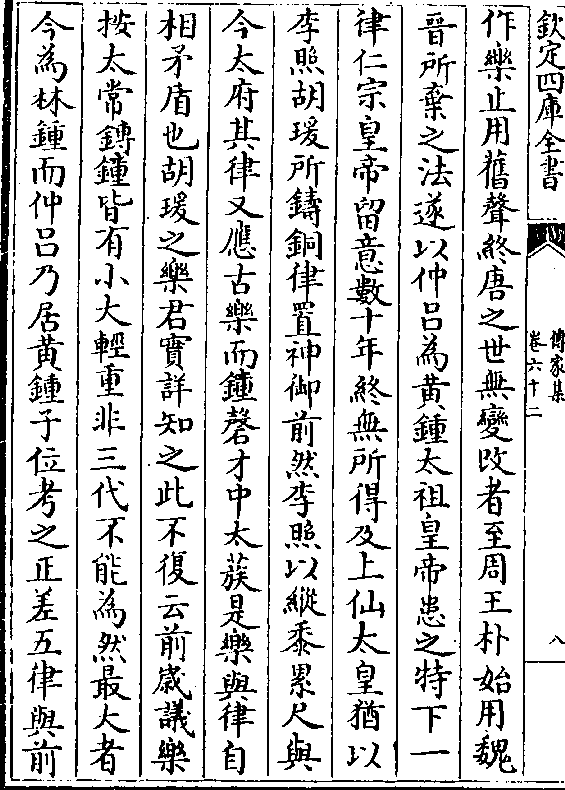 欽定四庫全書
傳家集
卷六十二
八
作樂止用舊聲終唐之世無變改者至周王朴始用魏
晉所棄之法遂以仲吕為黄鍾太祖皇帝患之特下一
律仁宗皇帝留意數十年終無所得及上仙太皇猶以
李照胡瑗所鑄銅律置神御前然李照以縱黍累尺與
今太府其律又應古樂而鍾磬才中太蔟是樂與律自
相矛盾也胡瑗之樂君實詳知之此不復云前嵗議樂
按太常鎛鐘皆有小大輕重非三代不能為然最大者
今為林鍾而仲吕乃居黄鍾子位考之正差五律與前